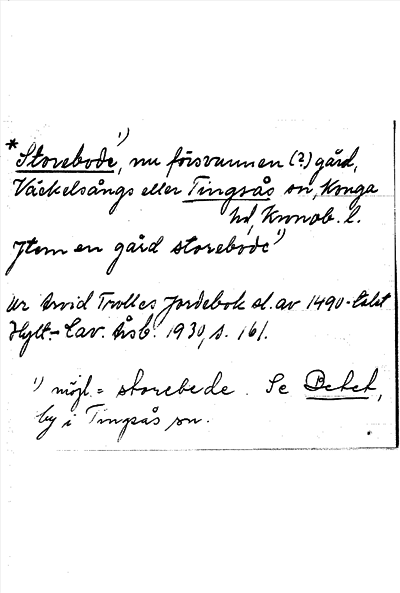 *Storebode¹⁾, nu försvunnen (?) gård,
Väckelsångs eller Tingsås sn, Konga
hd, Kronob. l.
Jtem en gård storebode¹⁾
Ur Arvid Trolles Jordebok sl. av 1490-talet
Hylt.-Cav. Årsb. 1930, s. 161.
¹⁾ möjl. = storebede. Se Betet,
by i Tingsås sn.